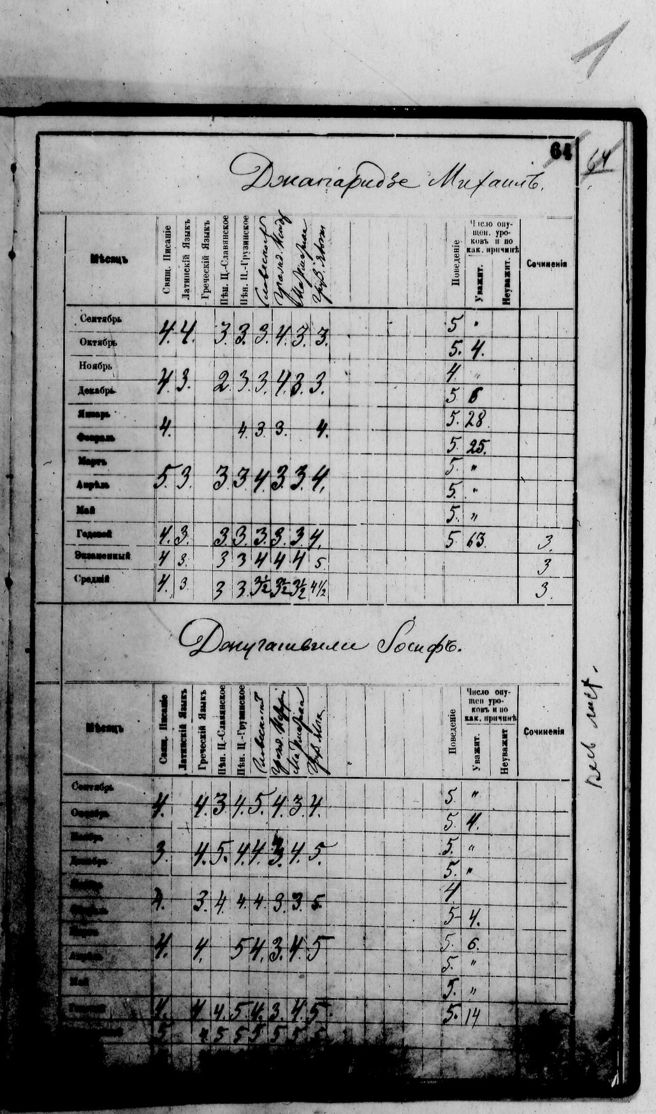 1
64
64
Джапаридзе Михаилъ.
Мѣсяцъ Свящ. Писаніе Латинскій Языкъ Греческій Языкъ Пѣн. Ц.-Славянское Пѣн. Ц.-Грузинское Поведеніе Число опущен. уроковъ и по как. причинѣ Уважит. Неуважит. Сочиненія
Сентябрь 5 "
Октябрь 4. 4. 3. 3. 3. 4. 3. 3. 5. 4.
Ноябрь 4. "
Декабрь 4. 3. 2. 3. 3. 4. 3. 3. 5 6
Январь 5. 28
Февраль 4. 4. 3. 3. 4. 5. 25.
Мартъ 5. "
Апрѣль 5. 3. 3. 3 4. 3. 3. 4. 5. "
Май 5. "
Годовой 4. 3. 3 3. 3. 3. 3. 4. 5 63. 3.
Экзаменный 4 3. 3 3 4 4 4 5 3
Средній 4. 3. 3 3. 3½ 3½ 3½ 4½ 3.
Джугашвили Іосифъ.
Мѣсяцъ Свящ. Писаніе Латинскій Языкъ Греческій Языкъ Пѣн. Ц.-Славянское Пѣн. Ц.-Грузинское Поведеніе Число опущен уроковъ и по как. причинѣ Уважит. Неуважит Сочиненія
Сентябрь 5. "
Октябрь 4. 4. 3 4. 5. 4. 3. 4. 5 4.
Ноябрь 5. "
Декабрь 3. 4. 5. 4. 4. 3. 4. 5. 5. "
4
4. 3. 4. 4. 4 3. 3. 5. 5 4.
5. 6.
Апрѣль 4. 4. 5 4. 3. 4. 5 5. "
Май 5. "
4. 4 4. 5 4. 3. 4. 5. 5. 14
5 5 5 5 5 5